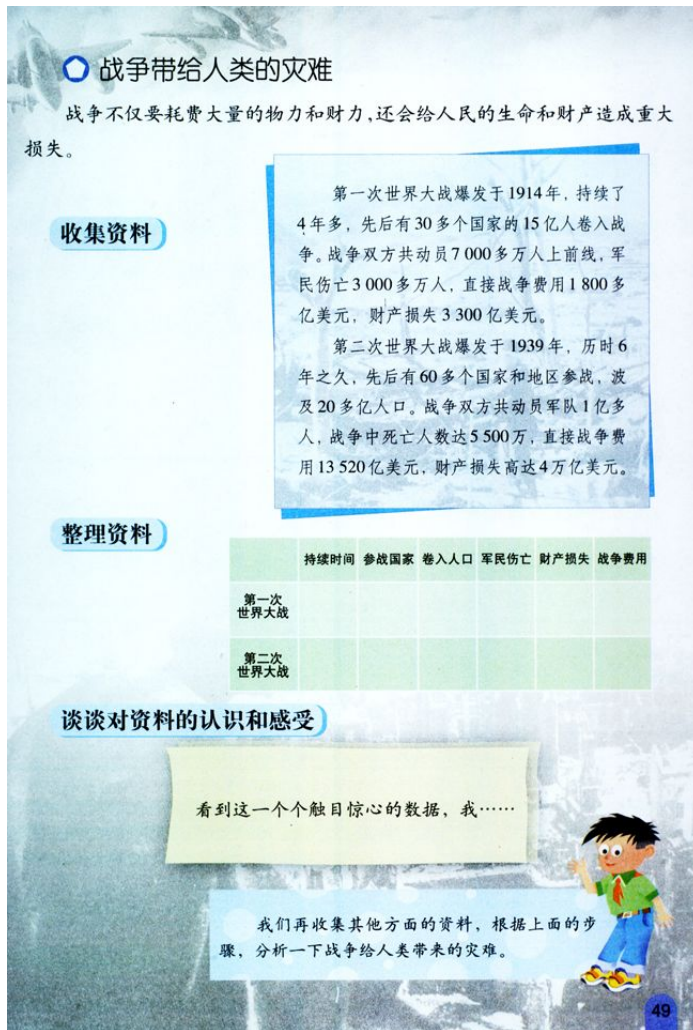 战争带给人类的灾难
战争不仅要耗费大量的物力和财力，还会给人民的生命和财产造成重大
损失。
收集资料
第一次世界大战爆发于1914年，持续了
4年多，先后有30多个国家的15亿人卷入战
争。战争双方共动员7 000多万人上前线，军
民伤亡3 000多万人，直接战争费用1 800多
亿美元，财产损失3 300亿美元。
第二次世界大战爆发于1939年，历时6
年之久，先后有60多个国家和地区参战，波
及20多亿人口。战争双方共动员军队1亿多
人，战争中死亡人数达5 500万，直接战争费
用13 520亿美元，财产损失高达4万亿美元。
整理资料
持续时间 参战国家 卷入人口 军民伤亡 财产损失 战争费用
第一次
世界大战
第二次
世界大战
谈谈对资料的认识和感受
看到这一个个触目惊心的数据，我……
我们再收集其他方面的资料，根据上面的步
骤，分析一下战争给人类带来的灾难。
49